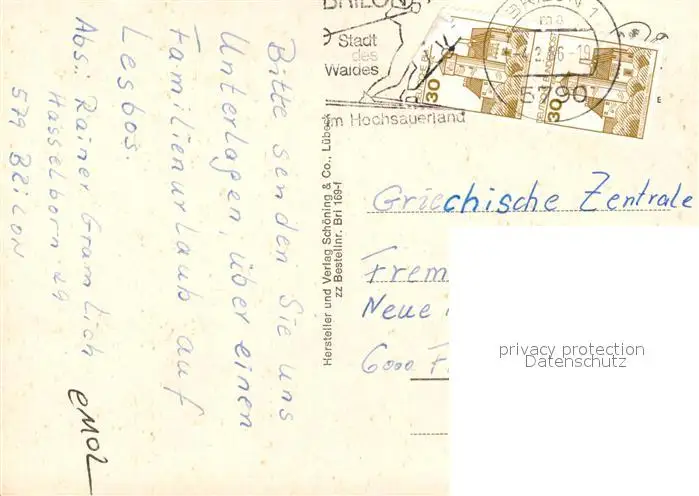 BRILON
Stadt
des
Waldes
im Hochsauerland
BRILON 1
5790
30
30
Bitte senden Sie uns
Unterlagen, über einen
Familienurlaub auf
Lesbos.
Abs.: Rainer Gramlich
Hasselborn 29
579 BRILON
Hersteller und Verlag Schöning & Co., Lübeck
zz Bestellnr. Bri 169-f
Griechische Zentrale
Frem
Neue
6000 F
privacy protection
Datenschutz